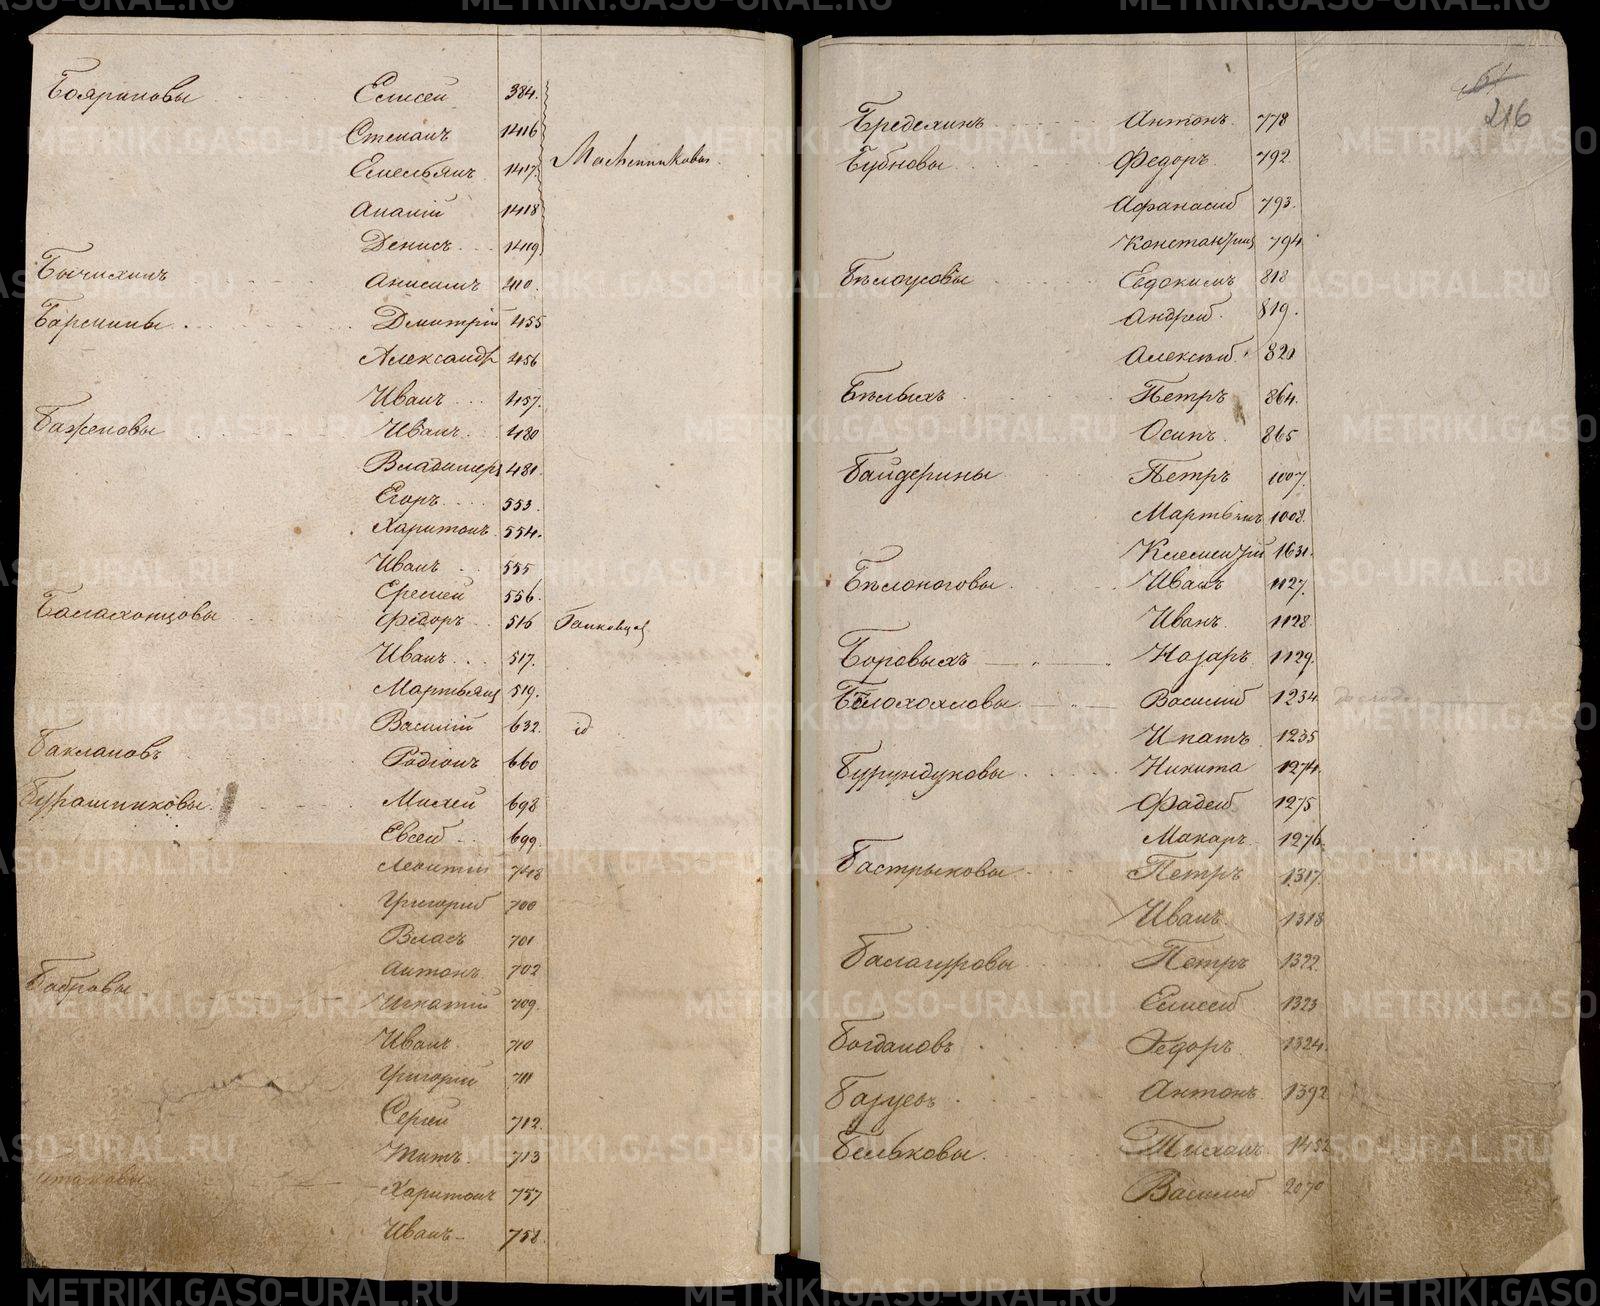 Бояриновы Елисей 384.
Степанъ 1416
Емельянъ 1417 Мошенниковы.
Ананій 1418
Денисъ 1419
Бычихинъ Анисимъ 410.
Бармины Дмитрій 455
Александръ 456
Иванъ 457.
Баженовы Иванъ 480
Владимеръ 481.
Егоръ 553.
Харитонъ 554.
Иванъ 555
Еремей 556.
Балахонцовы Федоръ 516
Иванъ 517.
Мартьянъ 519.
Василій 632. id
Баклановъ Родіонъ 660
Бурашниковы. Михей 698
Евсей 699
Леонтій 748
Григорій 700
Власъ 701
Антонъ 702
Бобровы Игнатій 709.
Иванъ 710
Григорій 711
Сергей 712.
Титъ 713
Харитонъ 757
Иванъ 758.
216
Бределинъ Антонъ 778
Бубновы Федоръ 792
Афанасій 793.
Константинъ 794
Бѣлоусовы Евдокимъ 818
Андрей 819.
Алексѣй 820
Бѣлыхъ Петръ 864.
Осипъ 865
Байдерины Петръ 1007.
Мартынъ 1008.
Клементій 1631.
Бѣлоноговы Иванъ 1127.
Иванъ 1128
Боровыхъ Назаръ 1129.
Бѣлохохловы. Василій 1234
Ипатъ 1235
Бурундуковы Никита 1274.
Фадей 1275
Макаръ 1276
Бастрыковы Петръ 1317.
Иванъ 1318
Балагуровы Петръ 1322
Елисей 1323
Богдановъ Федоръ 1324.
Базуевъ Антонъ 1392
Бельковы. Тихонъ 1452
Василій 2070
METRIKI.GASO-URAL.RU